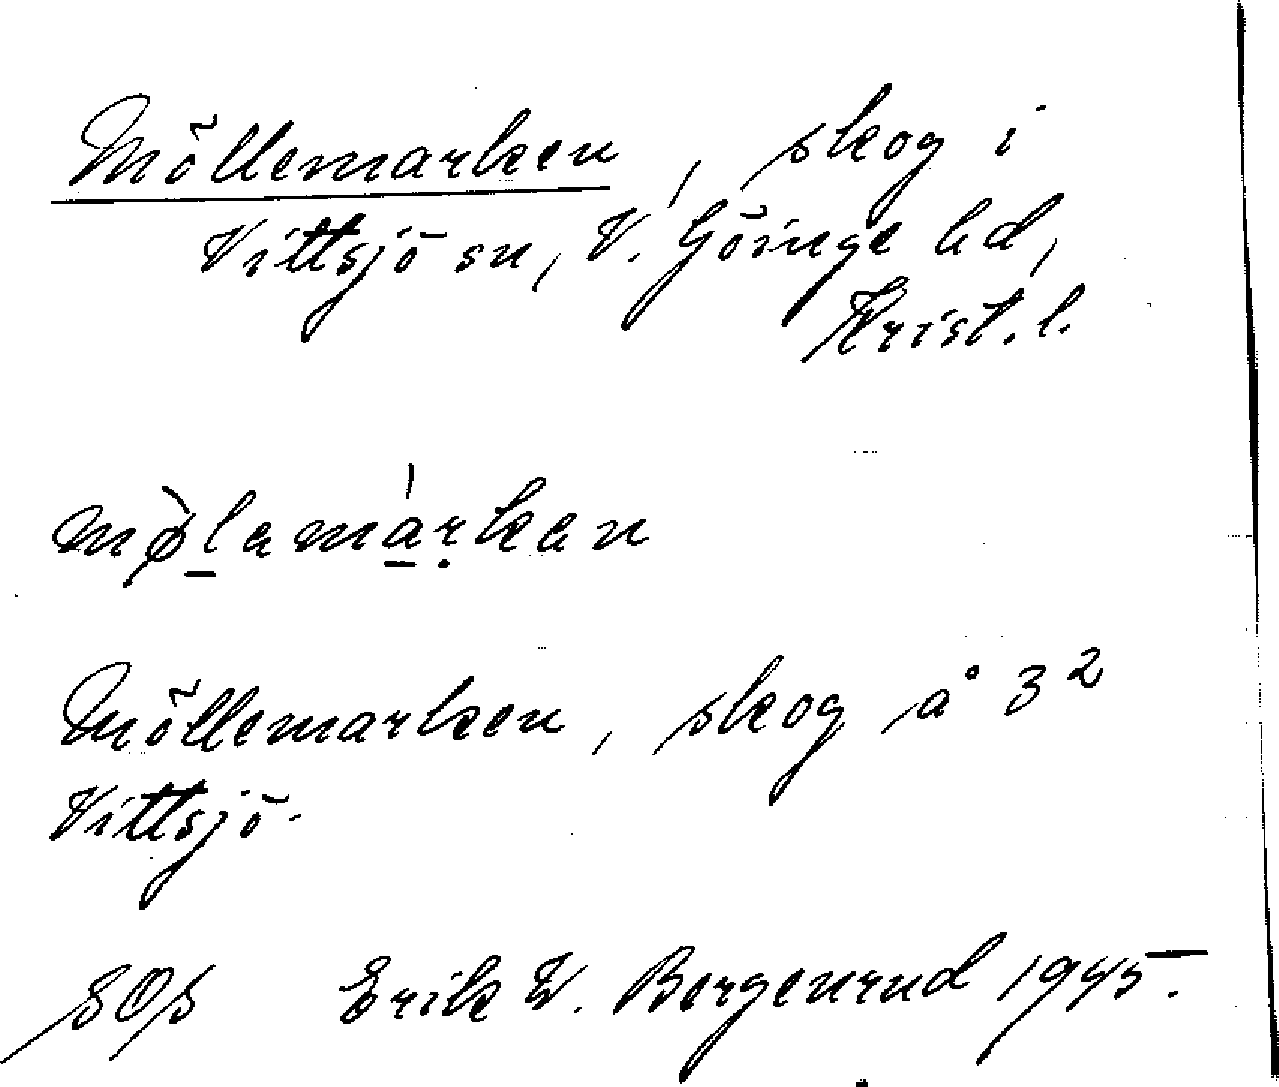 Möllemarken, skog i
Vittsjö sn, V. Göinge hd,
Krist. l.
mø̀lamárkan
Möllemarken, skog å 3²
Vittsjö.
SOS Erik W. Bergenrud 1945.